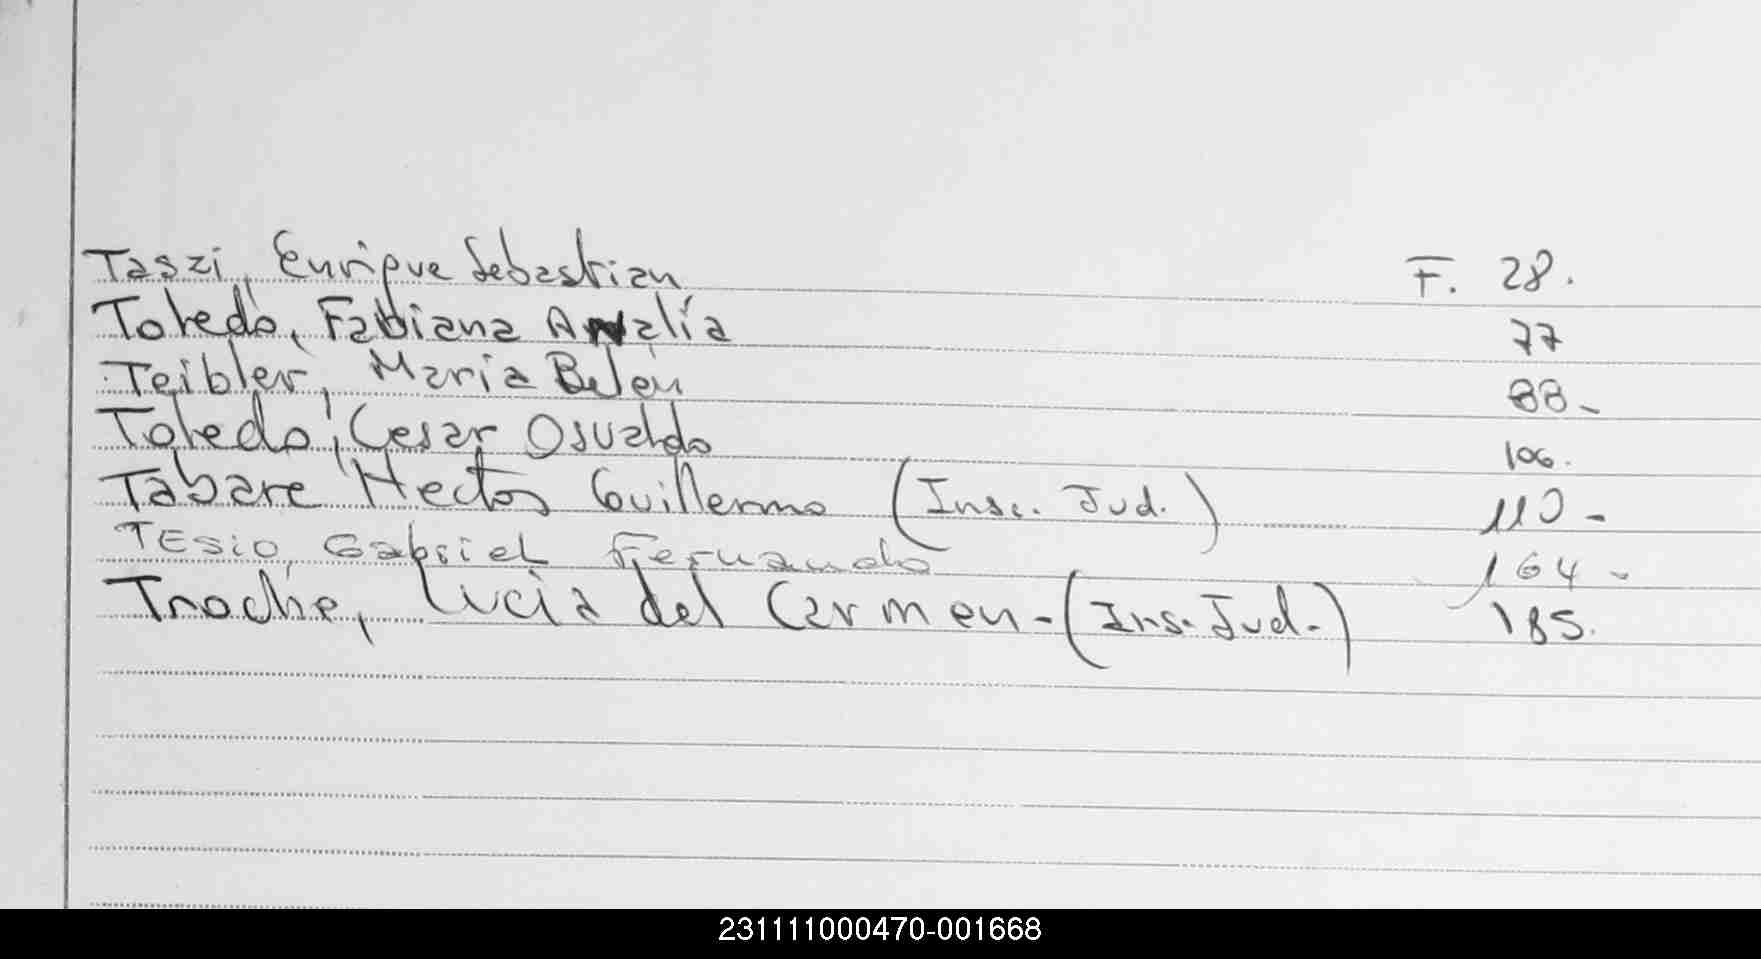 Taszi, Enrique Sebastian F. 28.
Toledo, Fabiana Analía 77
Teibler, Maria Belen 88-
Toledo, Cesar Osvaldo 106.
Tabare Hector Guillermo (Insc. Jud.) 110-
TEsio, Gabriel Fernando 164-
Troche, Lucia del Carmen-(Ins. Jud.) 185.
231111000470-001668